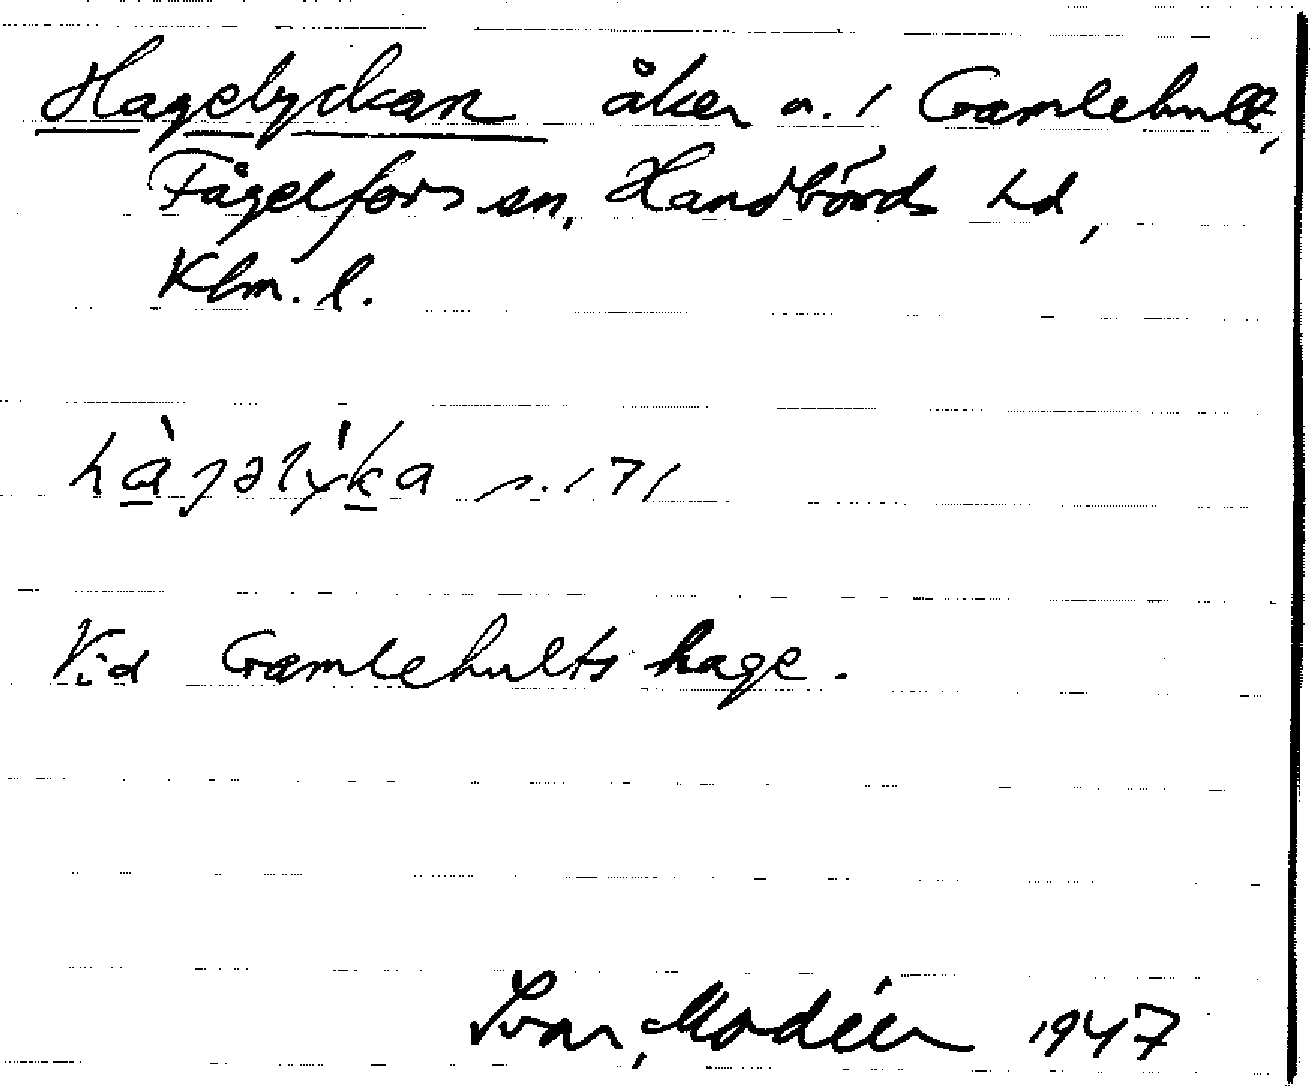 Hagelyckan åker n. 1 Gamlehult,
Fågelfors sn, Handbörds hd,
Klm. l.
s. 171
Vid Gamlehults hage.
Ivar Modéer 1947